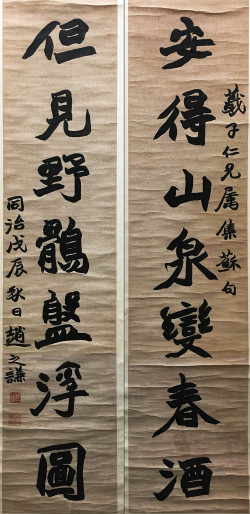 蕺子仁兄属集蘇句
安得山泉變春酒
但見野鶻盤浮圖
同治戊辰秋日趙之謙